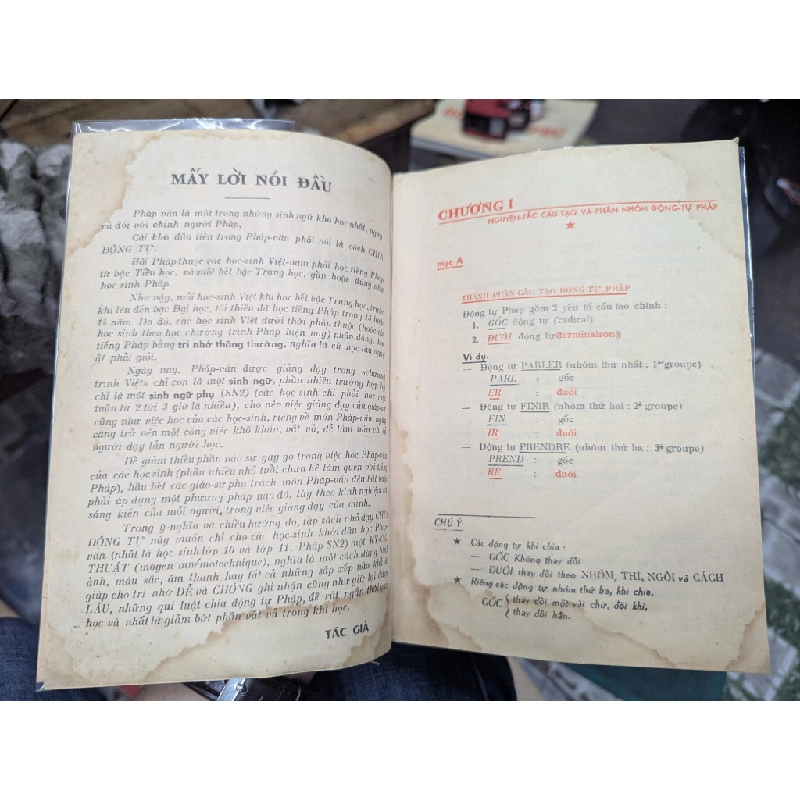 MẤY LỜI NÓI ĐẦU
Pháp văn là một trong những sinh ngữ khó học nhất, ngay
cả đối với chính người Pháp,
Cái khó đầu tiên trong Pháp-văn phải nói là cách CHIA
ĐỘNG TỰ.
Hồi Pháp thuộc các học-sinh Việt-nam phải học tiếng Pháp
từ bậc Tiểu học, và suốt hết bậc Trung học, gần hoặc đúng như
học sinh Pháp.
Như vậy, mỗi học-sinh Việt khi học hết bậc Trung học, trước
khi lên đến bậc Đại học, tối thiểu đã học tiếng Pháp trong
năm. Do đó, các học-sinh Việt dưới thời Pháp thuộc (hoặc các
học sinh theo học chương trình Pháp hiện nay) phần đông học
tiếng Pháp bằng trí nhớ thông thường, nghĩa là cứ học lâu ngày
ắt phải giỏi.
Ngày nay, Pháp-văn được giảng dạy trong
trình Việt chỉ còn là một sinh ngữ, phần nhiều trường hợp lại
chỉ là một sinh ngữ phụ (SN2) (các học-sinh chỉ phải học mỗi
tuần từ 2 tới 3 giờ là nhiều), cho nên việc giảng dạy của giáo-sư
cũng như việc học của các học-sinh, riêng về môn Pháp-văn ngày
càng trở nên một công việc khó khăn, vất vả, dễ làm nản chí cả
người dạy lẫn người học.
Để giảm thiểu phần nào sự gay go trong việc học Pháp-văn
của các học sinh (phần nhiều nhỏ tuổi chưa hề làm quen với tiếng
Pháp), hầu hết các giáo-sư phụ trách môn Pháp-văn đều bắt buộc
phải áp dụng một phương pháp nào đó, tùy theo kinh nghiệm và
sáng kiến của mỗi người, trong việc giảng dạy của mình.
Trong ý-nghĩa và chiều-hướng đó, tập sách nhỏ dạy CHIA
ĐỘNG TỰ này muốn chỉ cho các học-sinh khởi đầu học Pháp
văn (nhất là học-sinh lớp 10 và lớp 11, Pháp SN2) một KỸ-
THUẬT (moyen mnémotechnique), nghĩa là một cách dùng hình
ảnh, màu sắc, âm thanh hay tất cả những sắp xếp nào khả dĩ
giúp cho trí nhớ DỄ và CHÓNG ghi nhận cũng như giữ kỹ được
LÂU, những qui luật chia động tự Pháp, để rút ngắn thời gian
học và nhất là giảm bớt phần vất vả trong khi học.
TÁC GIẢ
CHƯƠNG I
NGUYÊN-TẮC CẤU-TẠO VÀ PHÂN NHÓM ĐỘNG-TỰ PHÁP
★
mục A
THÀNH PHẦN CẤU-TẠO ĐỘNG TỰ PHÁP
Động tự Pháp gồm 2 yếu tố cấu tạo chính :
1. GỐC động tự (radical)
2. ĐUÔI động tự (terminaison)
Ví dụ.
— Động tự PARLER (nhóm thứ nhất : 1er groupe)
PARL : gốc
ER : đuôi
— Động tự FINIR (nhóm thứ hai : 2è groupe)
FIN : gốc
IR : đuôi
— Động tự PRENDRE (nhóm thứ ba : 3è groupe)
PREND : gốc
RE : đuôi
CHÚ Ý
★ Các động tự khi chia :
— GỐC Không thay đổi
— ĐUÔI thay đổi theo NHÓM, THÌ, NGÔI và CÁCH
★ Riêng các động tự nhóm thứ ba, khi chia,
GỐC { thay đổi một vài chữ, đôi khi,
thay đổi hẳn.